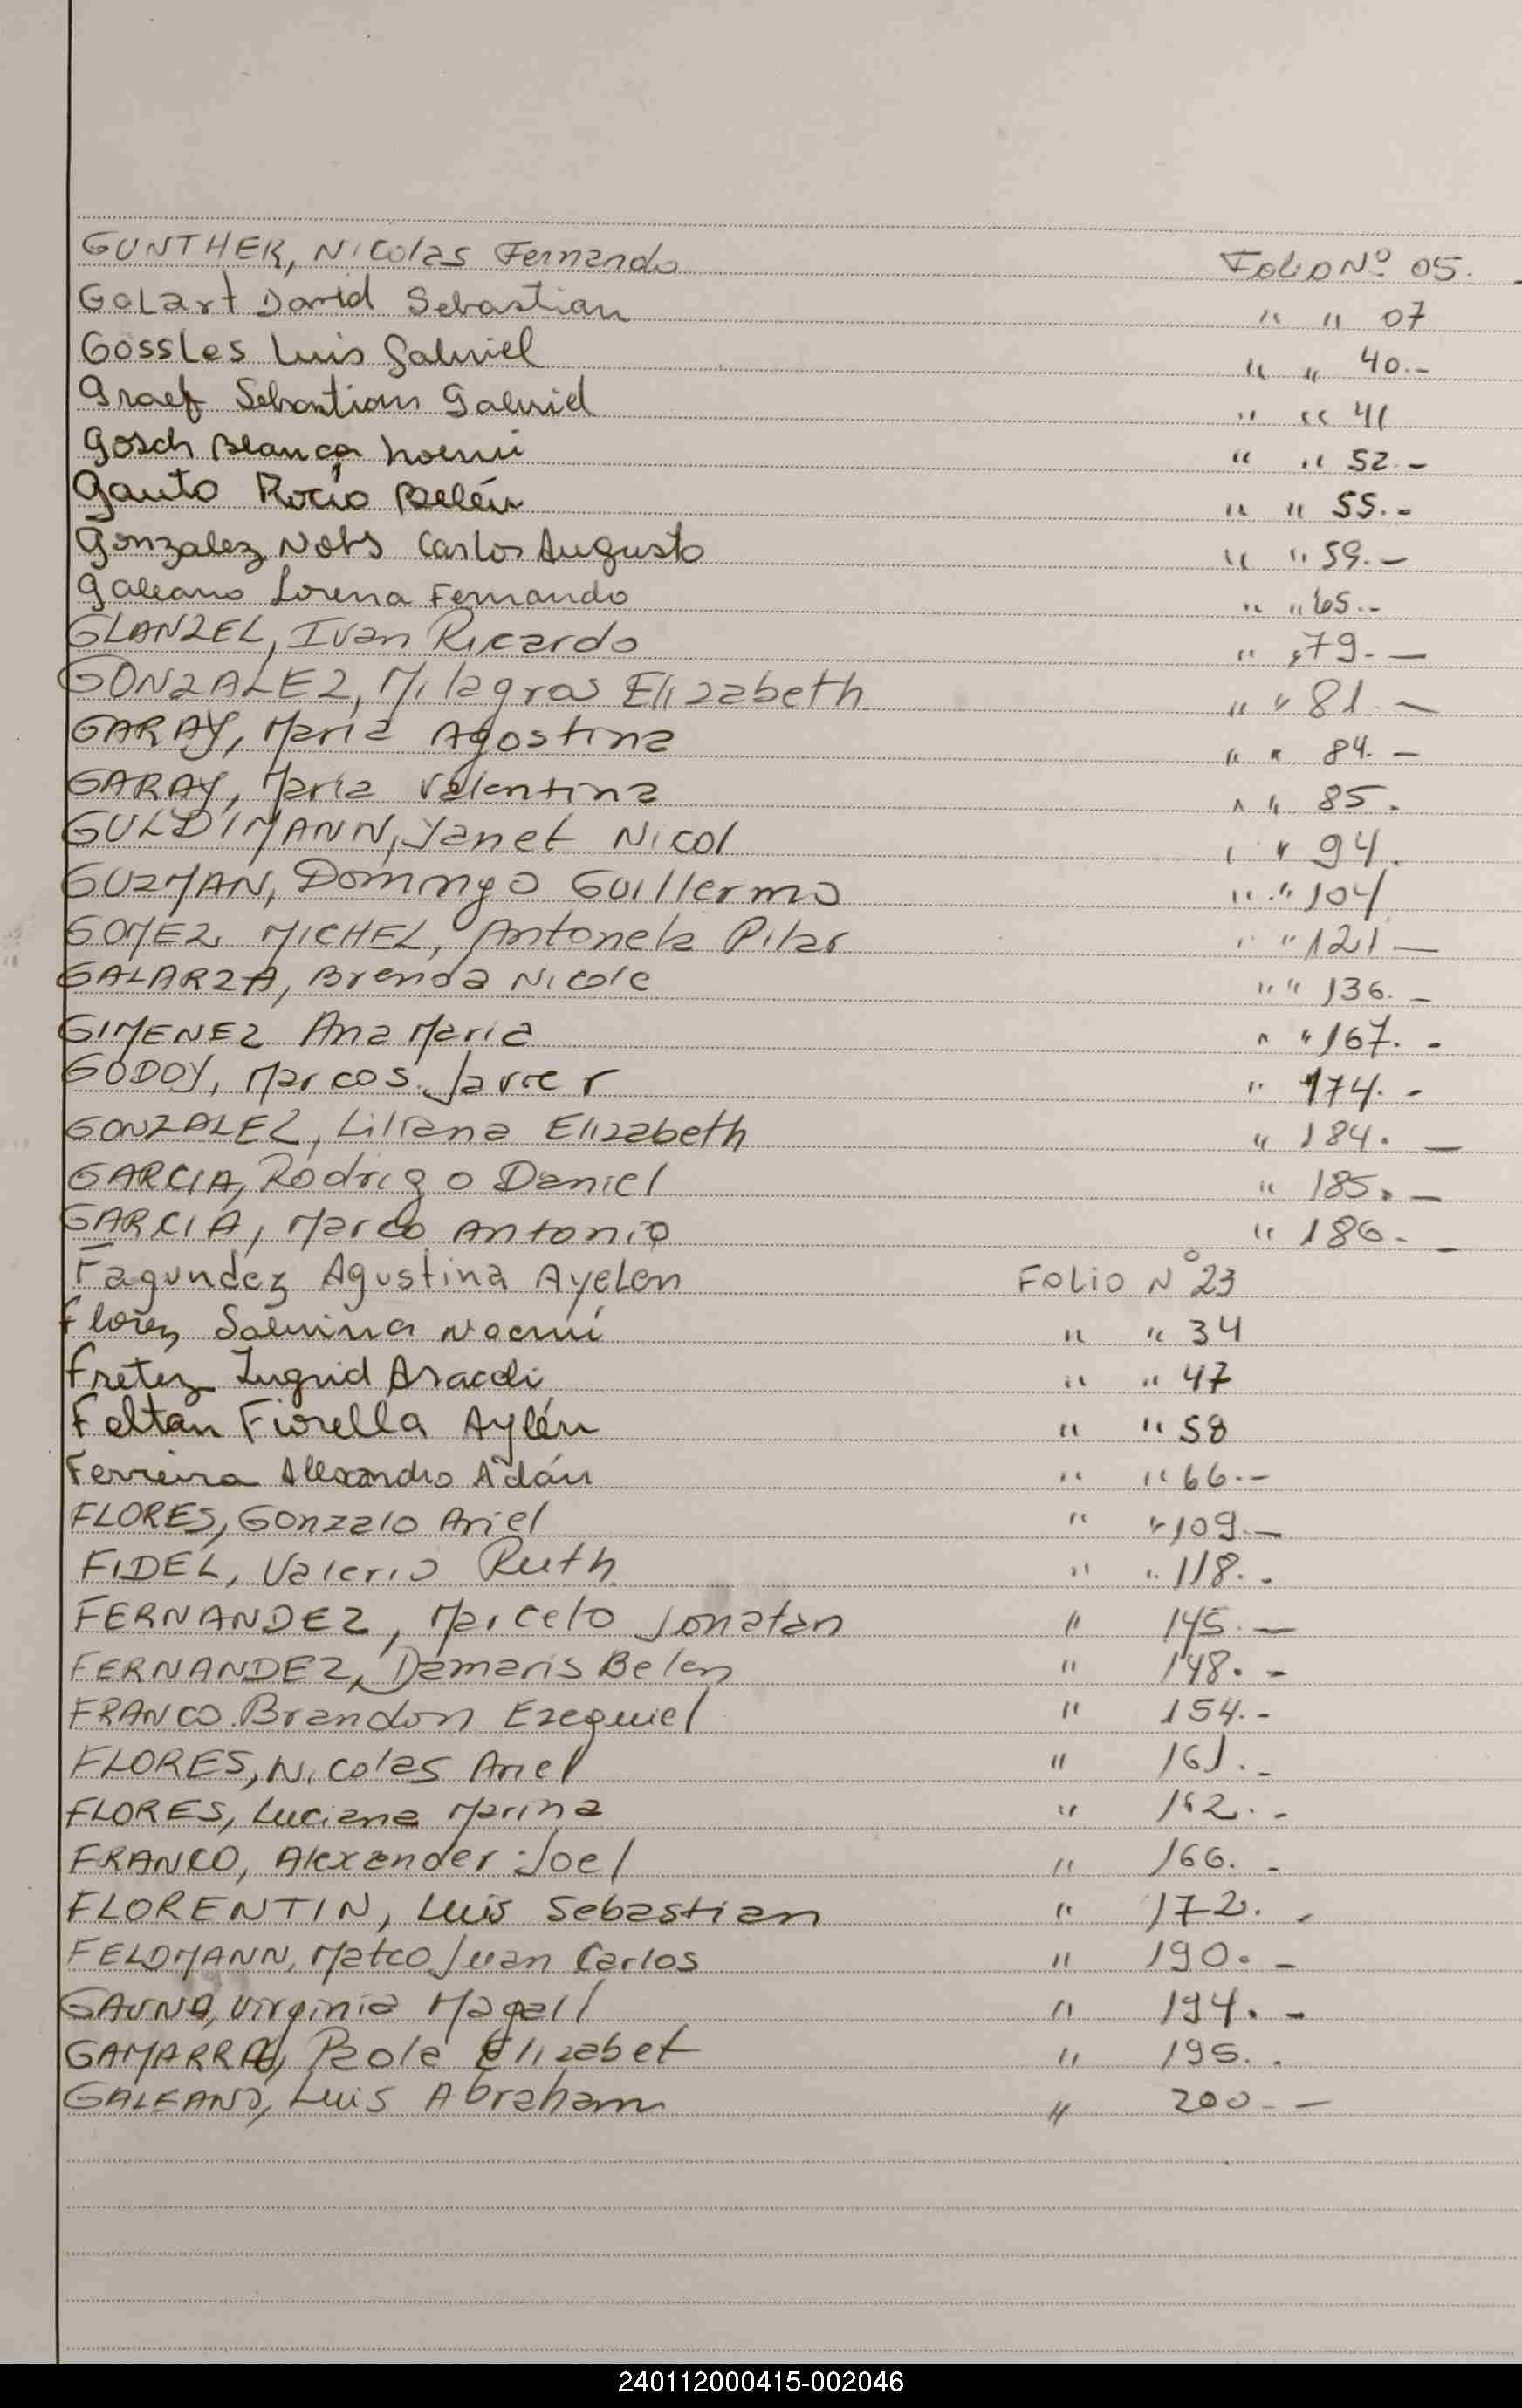 GUNTHER, Nicolas Fernando Folio Nº 05.
Golart David Sebastian " " 07
Gossles Luis Gabriel " " 40.-
Graef Sebastian Gabriel " " 41
Gosch Blanca Noemi " " 52.-
Gauto Rocío Belén " " 55.-
Gonzalez Carlos Augusto " " 59.-
Galeano Lorena Fernando " " 65.-
GLANZEL, Ivan Ricardo " " 79.-
GONZALEZ, Milagros Elizabeth " " 81.-
GARAY, Maria Agostina " " 84.-
GARAY, Maria Valentina " " 85.
GULDIMANN, Yanet Nicol " " 94.
GUZMAN, Domingo Guillermo " " 104
GOMEZ MICHEL, Antonela Pilar " " 121-
GALARZA, Brenda Nicole " " 136.-
GIMENEZ Ana Maria " " 167.-
GODOY, Marcos Javier " 174.-
GONZALEZ, Liliana Elizabeth " 184.-
GARCIA, Rodrigo Daniel " 185.-
GARCIA, Marco Antonio " 186.-
Fagundez Agustina Ayelen Folio Nº 23
Florez Sabrina Noemí " " 34
Fretez Ingrid Araceli " " 47
Feltan Fiorella Aylén " " 58
Ferreira Alexandro Adán " " 66.-
FLORES, Gonzalo Ariel " " 109.-
FIDEL, Valerio Ruth " " 118.-
FERNANDEZ, Marcelo Jonatan " 145.-
FERNANDEZ, Damaris Belen " 148.-
FRANCO. Brandon Ezequiel " 154.-
FLORES, Nicolas Ariel " 161.-
FLORES, Luciana Marina " 162.-
FRANCO, Alexander Joel " 166.-
FLORENTIN, Luis Sebastian " 172.-
FELDMANN, Mateo Juan Carlos " 190.-
GAUNA, Virginia Magali " 194.-
GAMARRA, Paola Elizabet " 195.-
GALEANO, Luis Abraham " 200.-
240112000415-002046